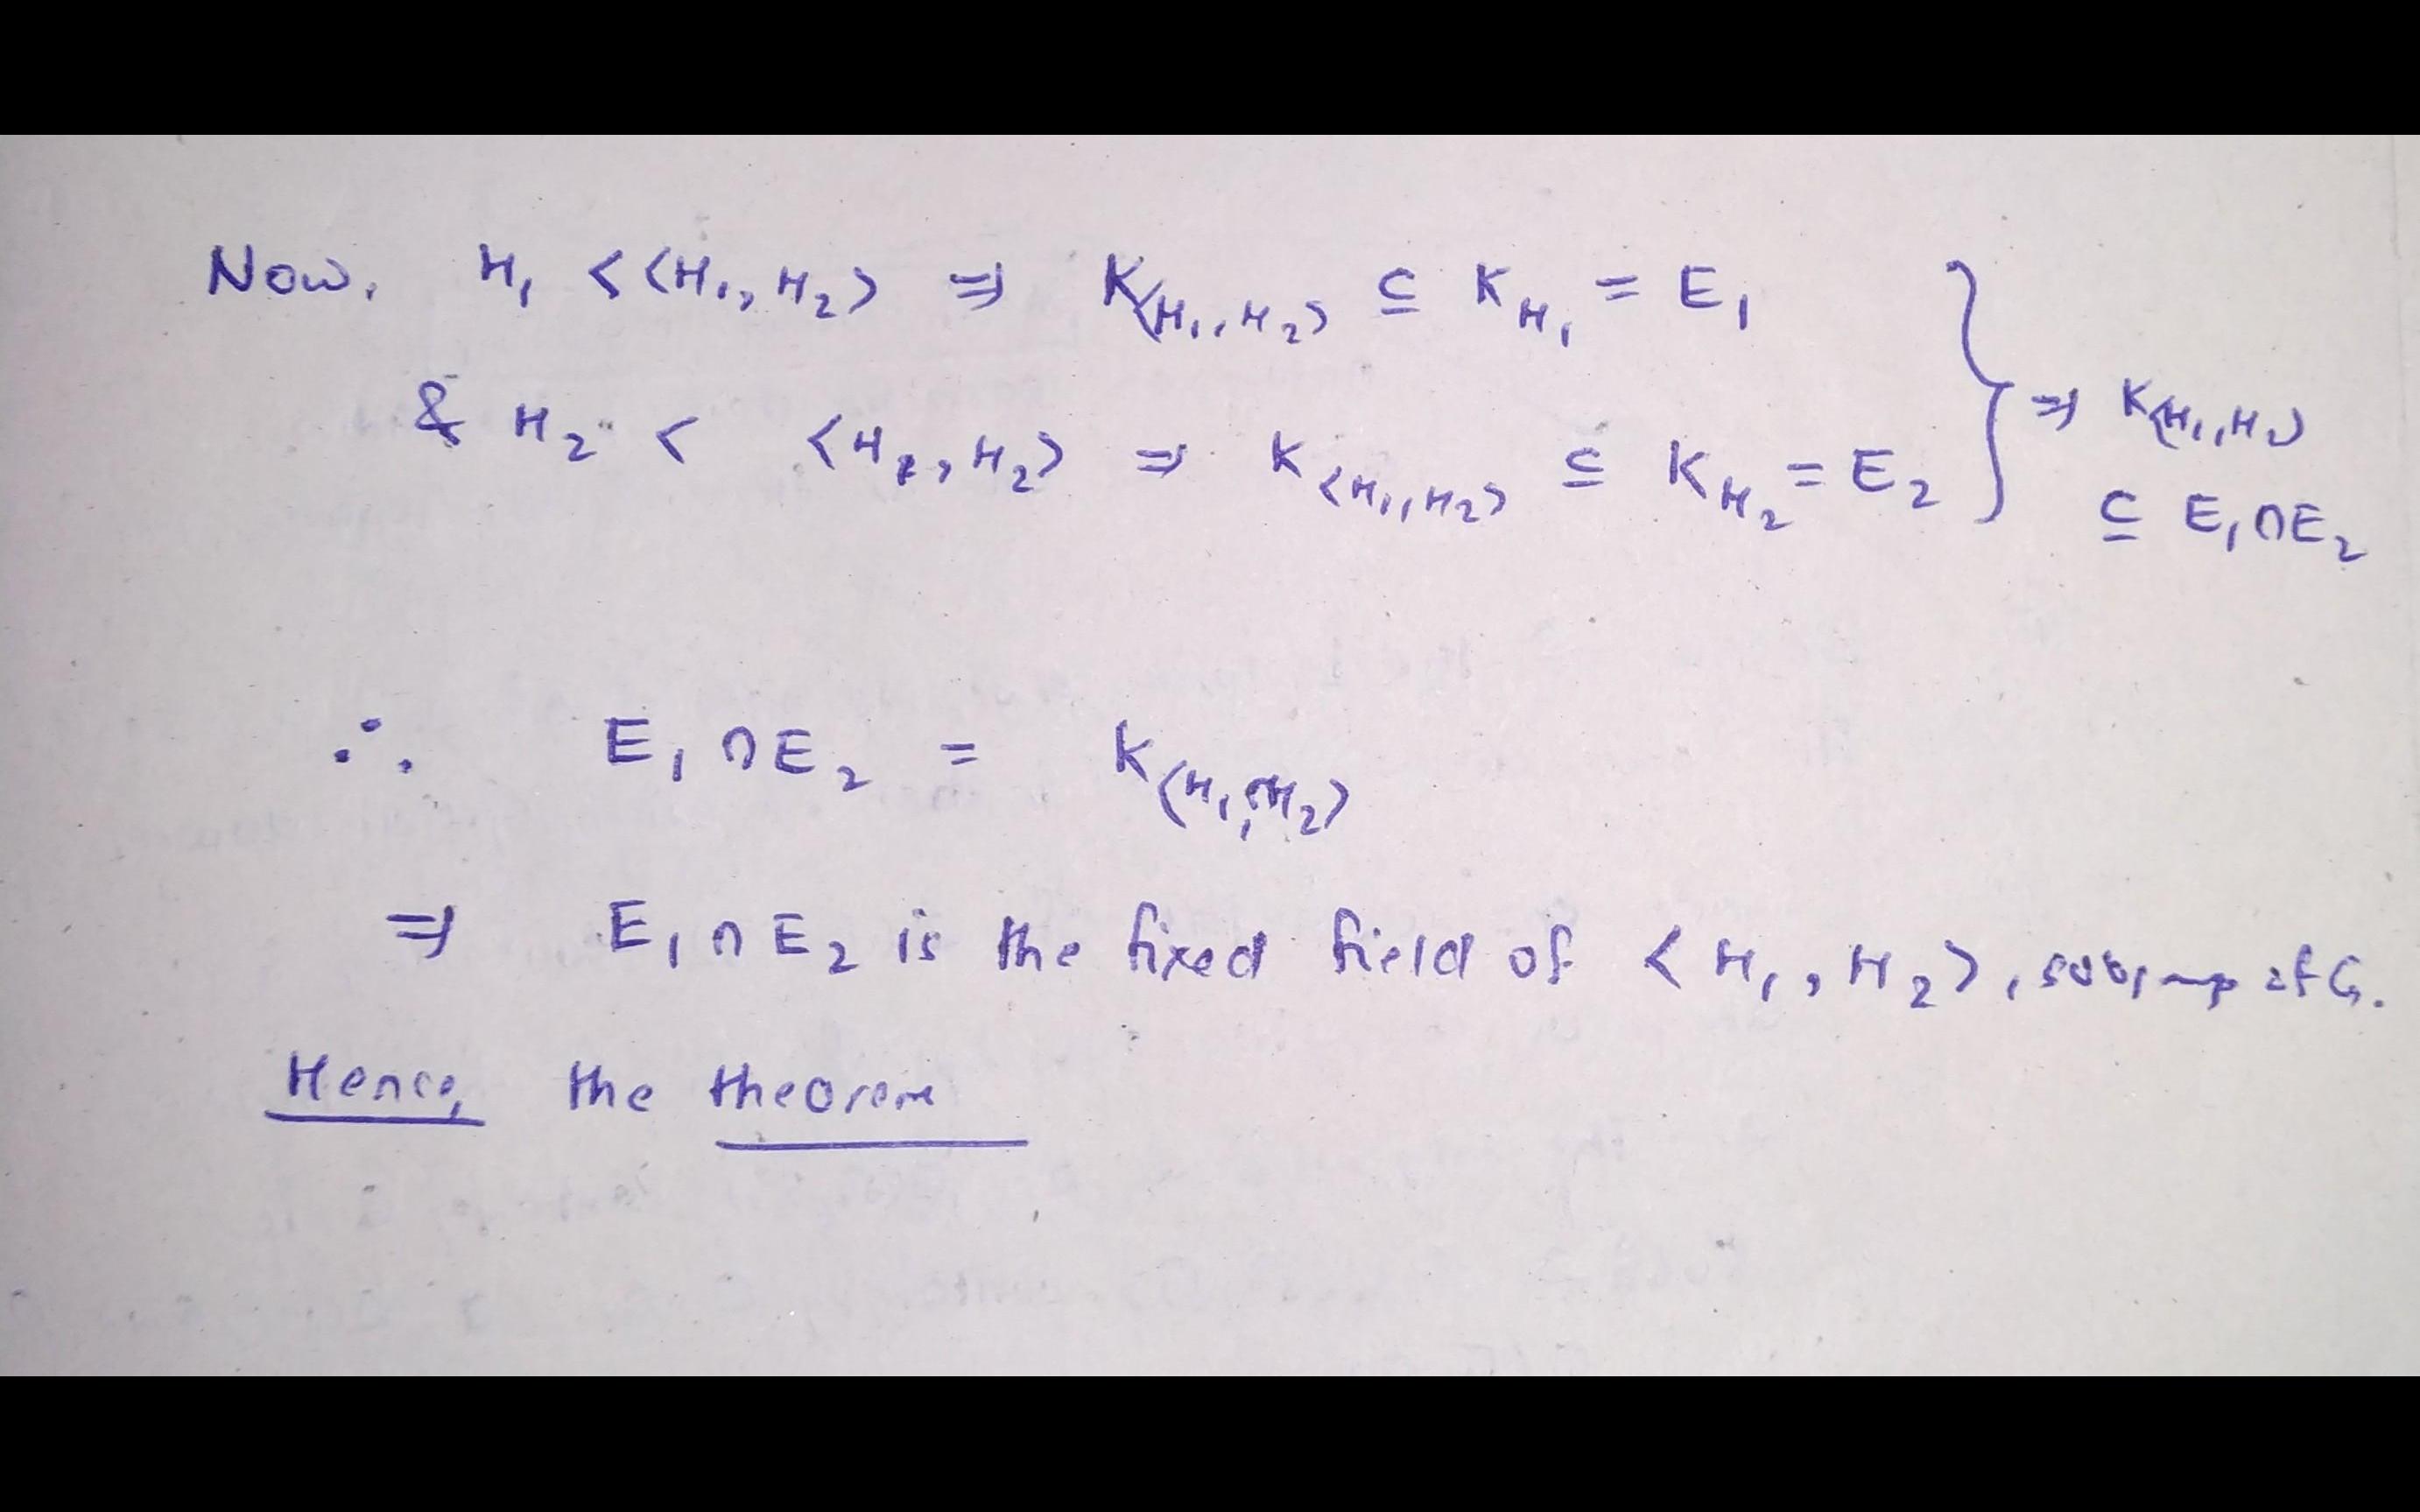 Now, H₁ < ⟨H₁, H₂⟩ ⇒ K⟨H₁, H₂⟩ ⊆ K_H₁ = E₁
& H₂ < ⟨H₁, H₂⟩ ⇒ K⟨H₁, H₂⟩ ⊆ K_H₂ = E₂ } ⇒ K⟨H₁, H₂⟩
⊆ E₁ ∩ E₂
∴ E₁ ∩ E₂ = K⟨H₁, H₂⟩
⇒ E₁ ∩ E₂ is the fixed field of ⟨H₁, H₂⟩, subgroup of G.
Hence, the theorem